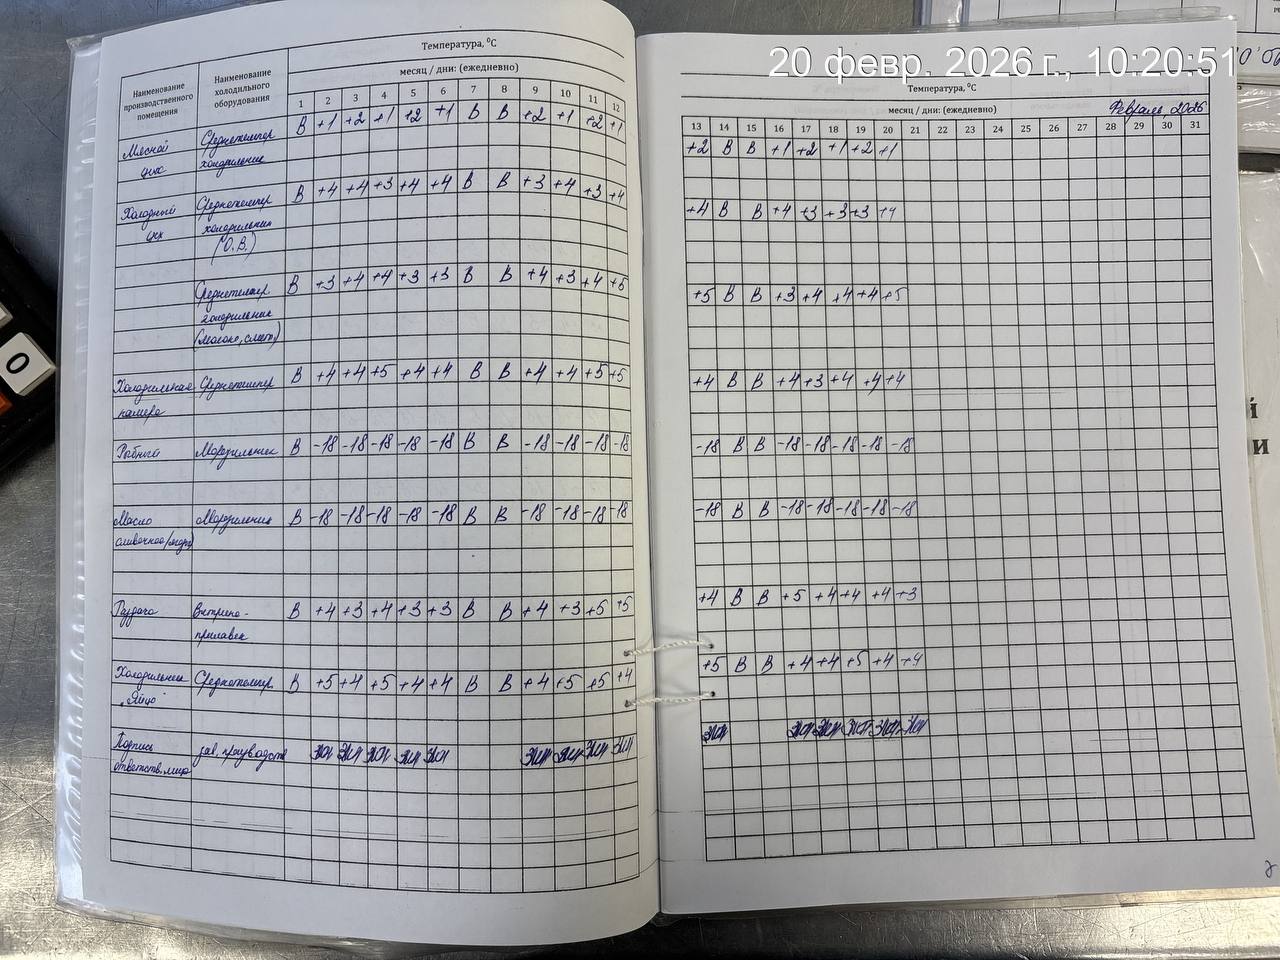 20 февр. 2026 г., 10:20:51
Наименование производственного помещения
Наименование холодильного оборудования
Температура, °С
месяц / дни: (ежедневно)
1 2 3 4 5 6 7 8 9 10 11 12
Мясной цех Среднетемпер холодильник В +1 +2 +1 +2 +1 В В +2 +1 +2 +1
Холодный цех Среднетемпер холодильник (О.В.) В +4 +4 +3 +4 +4 В В +3 +4 +3 +4
Среднетемпер холодильник (молоко, смет.) В +3 +4 +4 +3 +3 В В +4 +3 +4 +5
Холодильная камера Среднетемпер В +4 +4 +5 +4 +4 В В +4 +4 +5 +5
Рыбный Морозильник В -18 -18 -18 -18 -18 В В -18 -18 -18 -18
Масло сливочное/морз Морозильник В -18 -18 -18 -18 -18 В В -18 -18 -18 -18
Раздача Витрина-прилавок В +4 +3 +4 +3 +3 В В +4 +3 +5 +5
Холодильник "Яйцо" Среднетемпер. В +5 +4 +5 +4 +4 В В +4 +5 +5 +4
Подпись ответств. лица зав. производств
Температура, °С
месяц / дни: (ежедневно)
Февраль, 2026
13 14 15 16 17 18 19 20 21 22 23 24 25 26 27 28 29 30 31
+2 В В +1 +2 +1 +2 +1
+4 В В +4 +3 +3 +3 +4
+5 В В +3 +4 +4 +4 +5
+4 В В +4 +3 +4 +4 +4
-18 В В -18 -18 -18 -18 -18
-18 В В -18 -18 -18 -18 -18
+4 В В +5 +4 +4 +4 +3
+5 В В +4 +4 +5 +4 +4
0
й
и
2